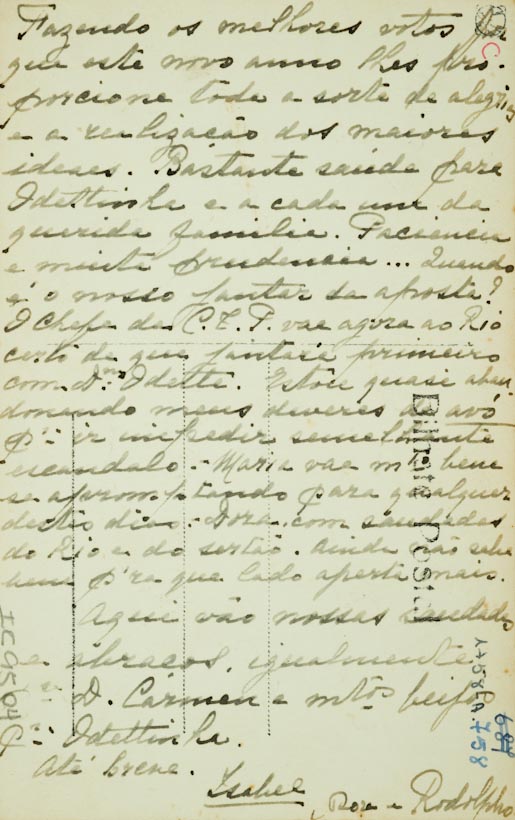 Fazendo os melhores votos
que este novo anno lhes pro-
porcione toda a sorte de alegrias
e a realização dos maiores
ideaes. Bastante saúde para
Idettinha e a cada um da
querida familia. Paciencia
e muita prudencia... Quando
é o nosso jantar da aposta?
O Chefe da C.T.P. vae agora ao Rio
certo de que jantará primeiro
com D. Idette. Estou quase aban-
donando meus deveres de avó
p.ª ir impedir semelhante
escandalo. Maria vae mto bem
se apromptando para qualquer
destes dias. Dora, com saudades
do Rio e do sertão. Ainda não sabe
bem p'ra que lado aperta mais.
Aqui vão nossas saudades
e abraços, igualmente
D. Cármen e mtos beijos
p.ª Idettinha.
Até breve.
Isabel
Dora e Rodolpho
Bilhete Postal
758